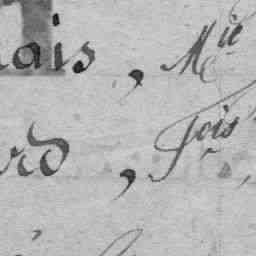 ais, Mie
rd, Fois